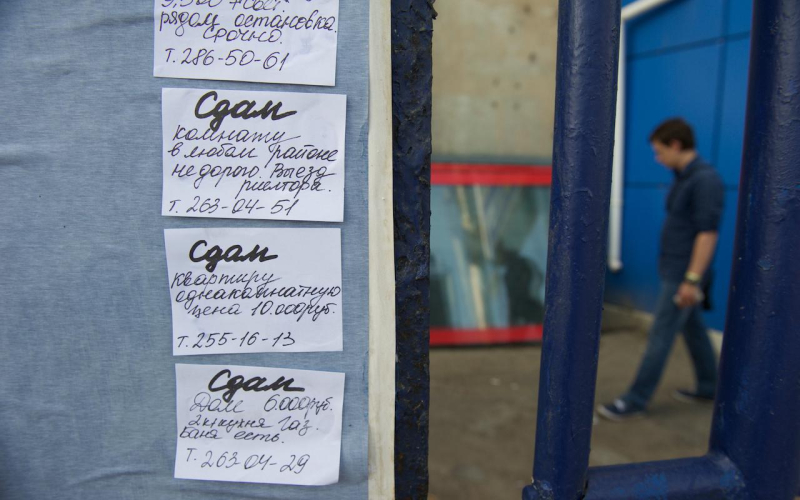 рядом остановка.
Срочно.
Т. 286-50-61
Сдам
комнату
в любом районе
недорого. Выезд
риелтора.
Т. 263-04-51
Сдам
квартиру
однакамнатную
цена 10.000руб.
Т. 255-16-13
Сдам
Дом 6.000руб.
2к+кухня Газ.
баня есть.
Т. 263-04-29